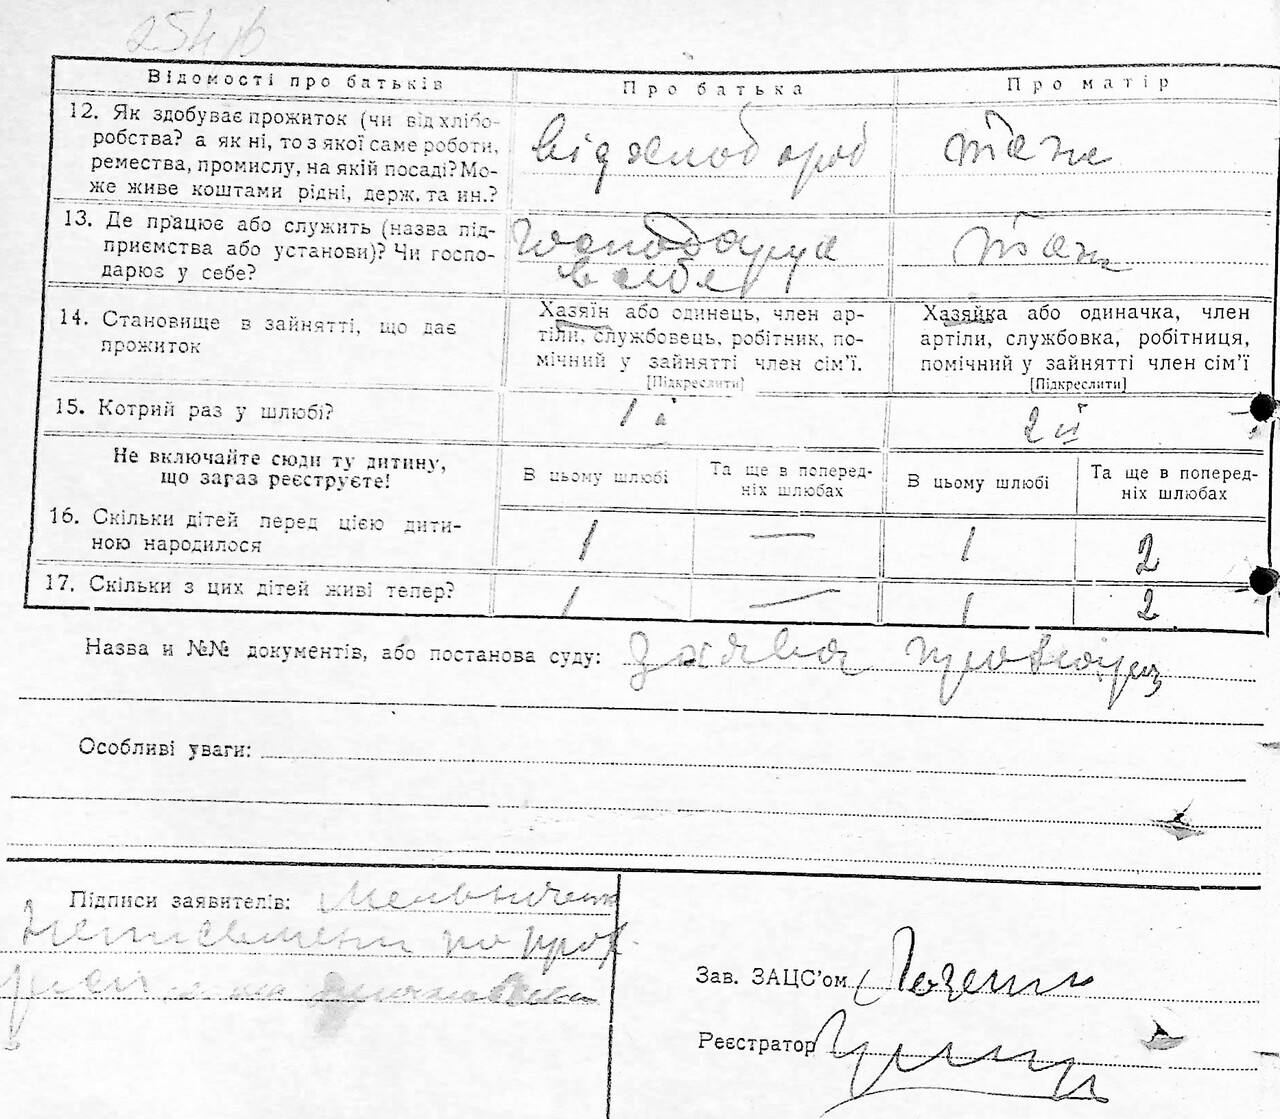 Відомості про батьків Про батька Про матір
12. Як здобуває прожиток (чи від хлібо-
робства? а як ні, то з якої саме роботи,
ремества, промислу, на якій посаді? Мо-
же живе коштами рідні, держ. та ин.?
від хлібороб
теж
13. Де працює або служить (назва під-
приємства або установи)? Чи госпо-
дарює у себе?
господарує
в себе
теж
14. Становище в зайнятті, що дає
прожиток
Хазяїн або одинець, член ар-
тіли, службовець, робітник, по-
мічний у зайнятті член сім'ї.
[Підкреслити]
Хазяйка або одиначка, член
артіли, службовка, робітниця,
помічний у зайнятті член сім'ї
[Підкреслити]
15. Котрий раз у шлюбі? 1й 2й
Не включайте сюди ту дитину,
що зараз реєструєте!
В цьому шлюбі
Та ще в поперед-
ніх шлюбах
В цьому шлюбі
Та ще в поперед-
ніх шлюбах
16. Скільки дітей перед цією дити-
ною народилося
1 — 1 2
17. Скільки з цих дітей живі тепер? 1 — 1 2
Назва и №№ документів, або постанова суду: заява
Особливі уваги:
Підписи заявителів:
Зав. ЗАЦС'ом
Реєстратор